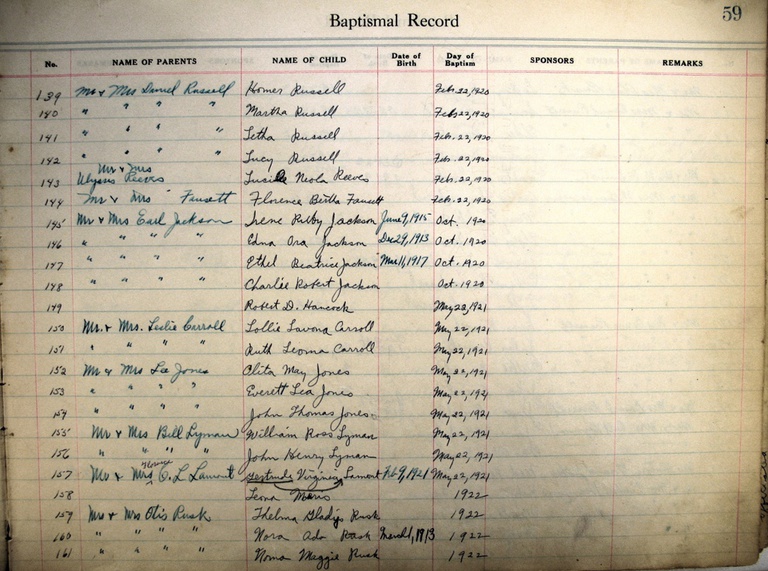 59
Baptismal Record
No. NAME OF PARENTS NAME OF CHILD Date of Birth Day of Baptism SPONSORS REMARKS
139 Mr & Mrs Daniel Russell Homer Russell Feb. 22, 1920
140 " " " " Martha Russell Feb. 22, 1920
141 " " " " Letha Russell Feb. 22, 1920
142 " " " " Lucy Russell Feb. 22, 1920
Mr & Mrs
143 Ulysses Reeves Lucille Neola Reeves Feb. 22, 1920
144 Mr & Mrs " Fausett Florence Bertha Fausett Feb. 22, 1920
145 Mr & Mrs Earl Jackson Irene Ruby Jackson June 9, 1915 Oct. 1920
146 " " " " Edna Ora Jackson Dec 29, 1913 Oct. 1920
147 " " " " Ethel Beatrice Jackson Mar. 11, 1917 Oct. 1920
148 " " " " Charlie Robert Jackson Oct. 1920
149 Robert D. Hancock May 22, 1921
150 Mr. & Mrs. Leslie Carroll Lollie Lavona Carroll May 22, 1921
151 " " " " Ruth Leoma Carroll May 22, 1921
152 Mr & Mrs Lee Jones May Jones May 22, 1921
153 " " " " Everett Lea Jones May 22, 1921
154 " " " " John Thomas Jones. May 22, 1921
155 Mr & Mrs Bill Lyman William Ross Lyman May 22, 1921
156 " " " " John Henry Lyman May 22, 1921
157 Mr & Mrs O. L Lamont Gertrude Virginia Lamont Feb 9, 1921 May 22, 1921
158 Leona 1922
159 Mr & Mrs Otis Rusk Thelma Gladys Rusk 1922
160 " " " " Nora Ada Rusk March 1, 1913 1922
161 " " " " Noma Maggie Rusk 1922